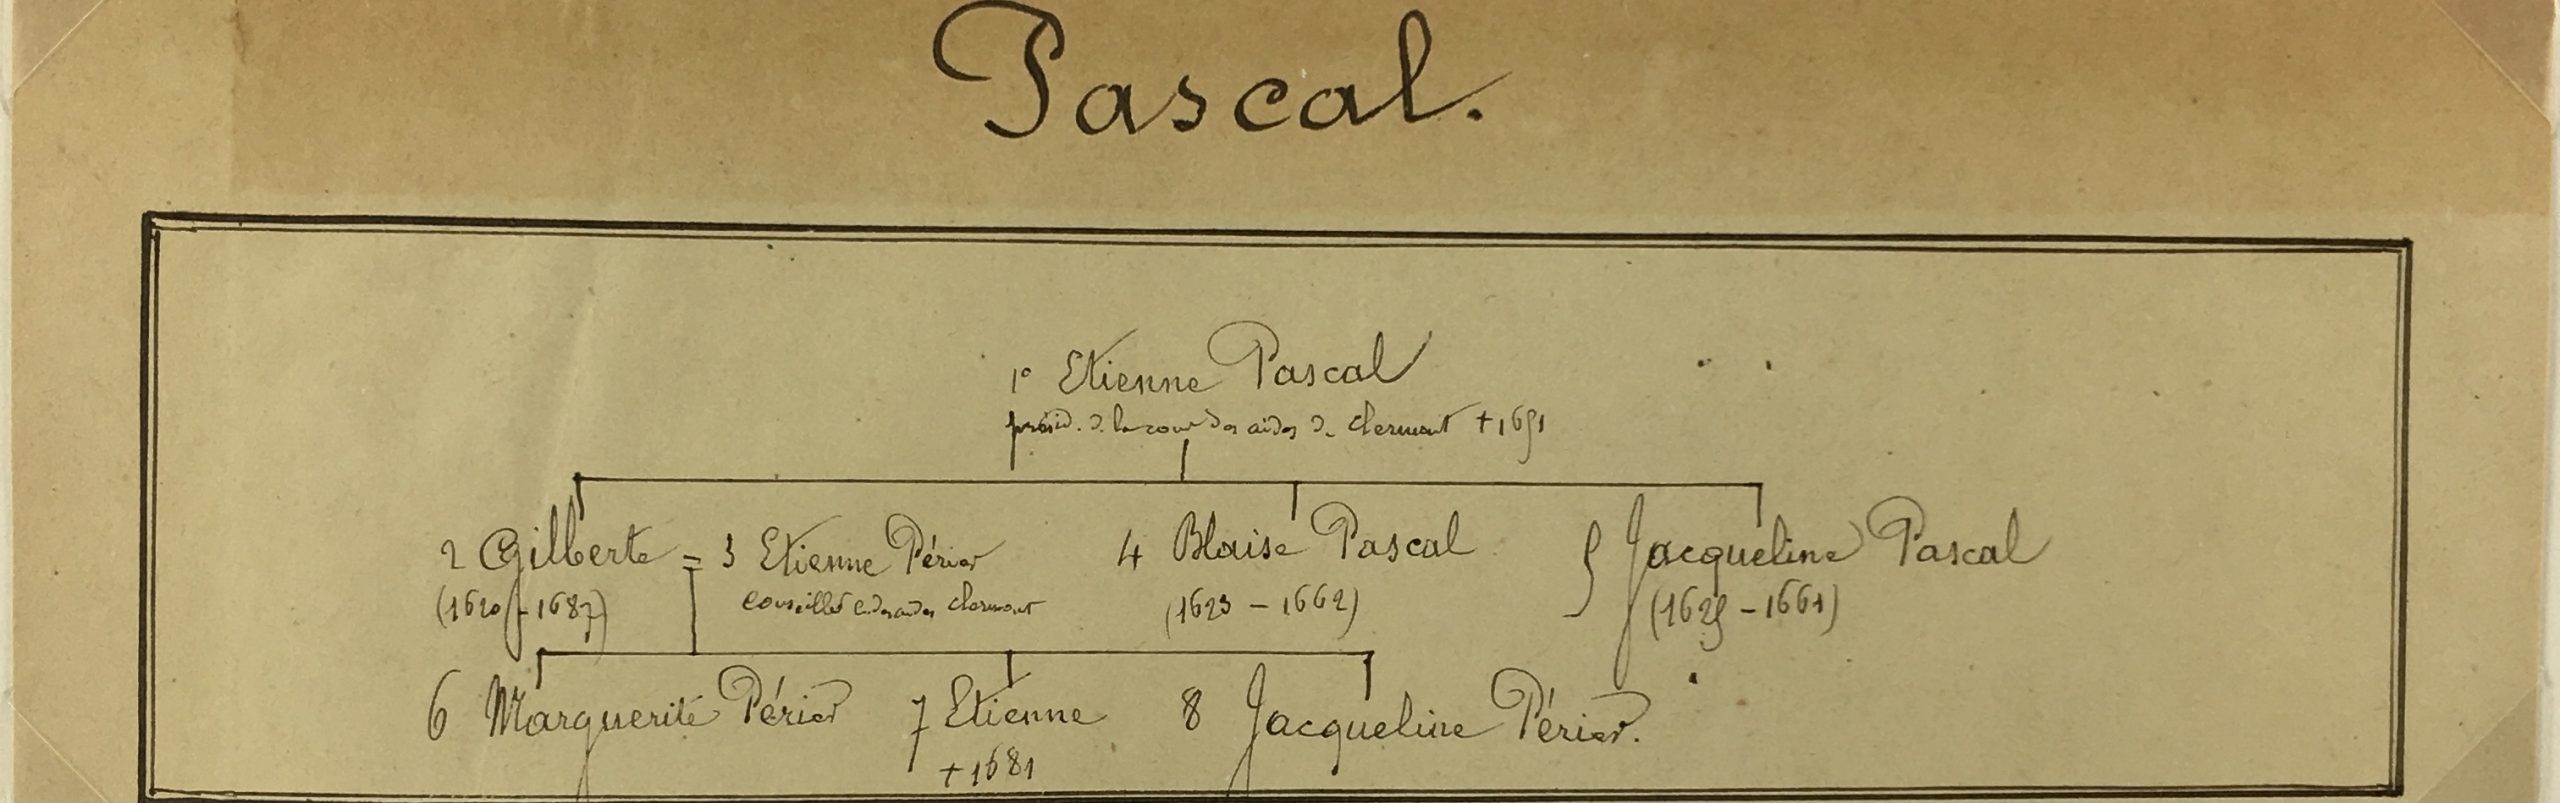 Pascal.
1° Etienne Pascal
présid. d. la cour des aides de Clermont +1651
2 Gilberte = 3 Etienne Périer 4 Blaise Pascal 5 Jacqueline Pascal
(1620 - 1687) conseiller c. des aides Clermont (1623 - 1662) (1625 - 1661)
6 Marguerite Périer 7 Etienne 8 Jacqueline Périer.
+1681